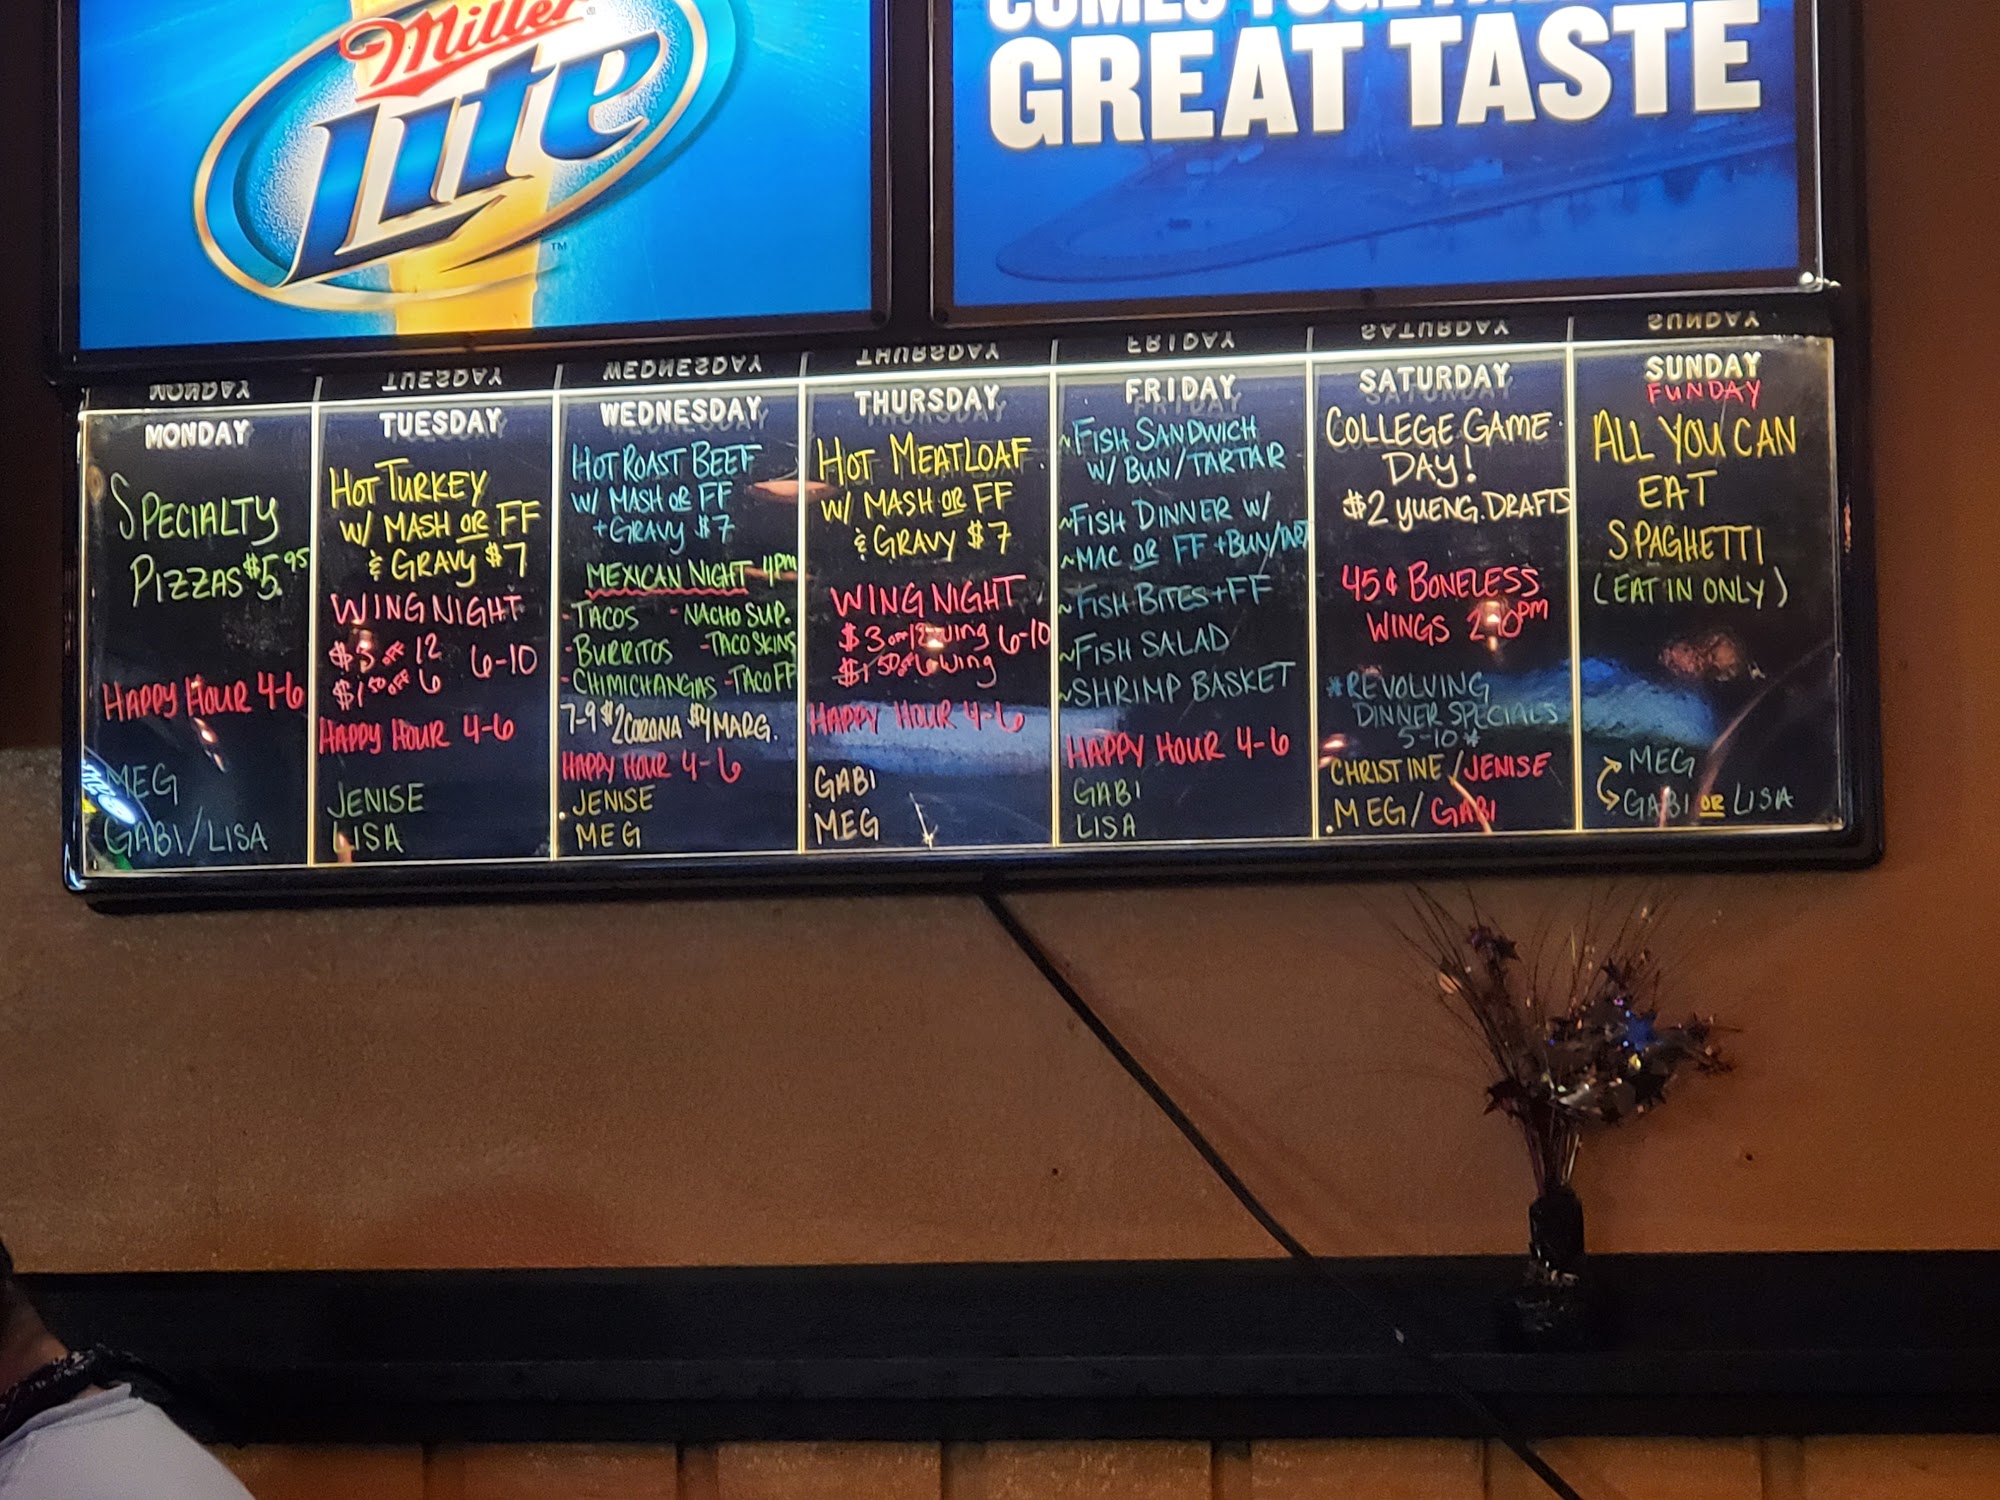 Miller
Lite
™
GREAT TASTE
MONDAY
SPECIALTY
PIZZAS $5.95
HAPPY HOUR 4-6
MEG
GABI/LISA
TUESDAY
HOT TURKEY
W/ MASH OR FF
& GRAVY $7
WING NIGHT
$3 OFF 12 6-10
$1.50 OFF 6
HAPPY HOUR 4-6
JENISE
LISA
WEDNESDAY
HOT ROAST BEEF
W/ MASH OR FF
+ GRAVY $7
MEXICAN NIGHT 4PM
-TACOS -NACHO SUP.
-BURRITOS -TACO SKINS
-CHIMICHANGAS -TACO FF
7-9 $2 CORONA $4 MARG.
HAPPY HOUR 4-6
JENISE
MEG
THURSDAY
HOT MEATLOAF
W/ MASH OR FF
& GRAVY $7
WING NIGHT
$3 OFF 12 wing 6-10
$1.50 OFF 6 wing
HAPPY HOUR 4-6
GABI
MEG
FRIDAY
~FISH SANDWICH
W/ BUN/TARTAR
~FISH DINNER W/
~MAC OR FF + BUN/TART
~FISH BITES + FF
~FISH SALAD
~SHRIMP BASKET
HAPPY HOUR 4-6
GABI
LISA
SATURDAY
COLLEGE GAME
DAY!
$2 YUENG. DRAFTS
45¢ BONELESS
WINGS
*REVOLVING
DINNER SPECIALS
5-10*
CHRISTINE/JENISE
MEG/GABI
SUNDAY
FUNDAY
ALL YOU CAN
EAT
SPAGHETTI
(EAT IN ONLY)
MEG
GABI OR LISA